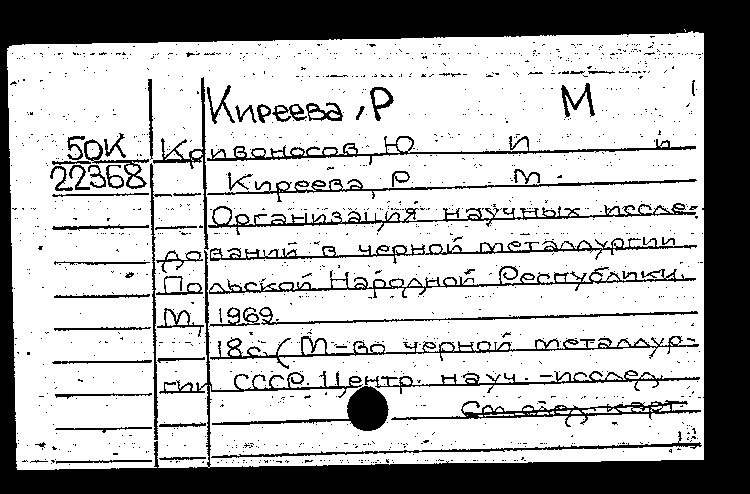 Киреева, Р М
50К Кривоносов, Ю И и
22368 Киреева, Р М.
Организация научных иссле-
дований в черной металлургии
Польской Народной Республики.
М, 1969.
18с. (М-во черной металлур-
гии СССР. Центр. науч.-исслед.
См след. карт.